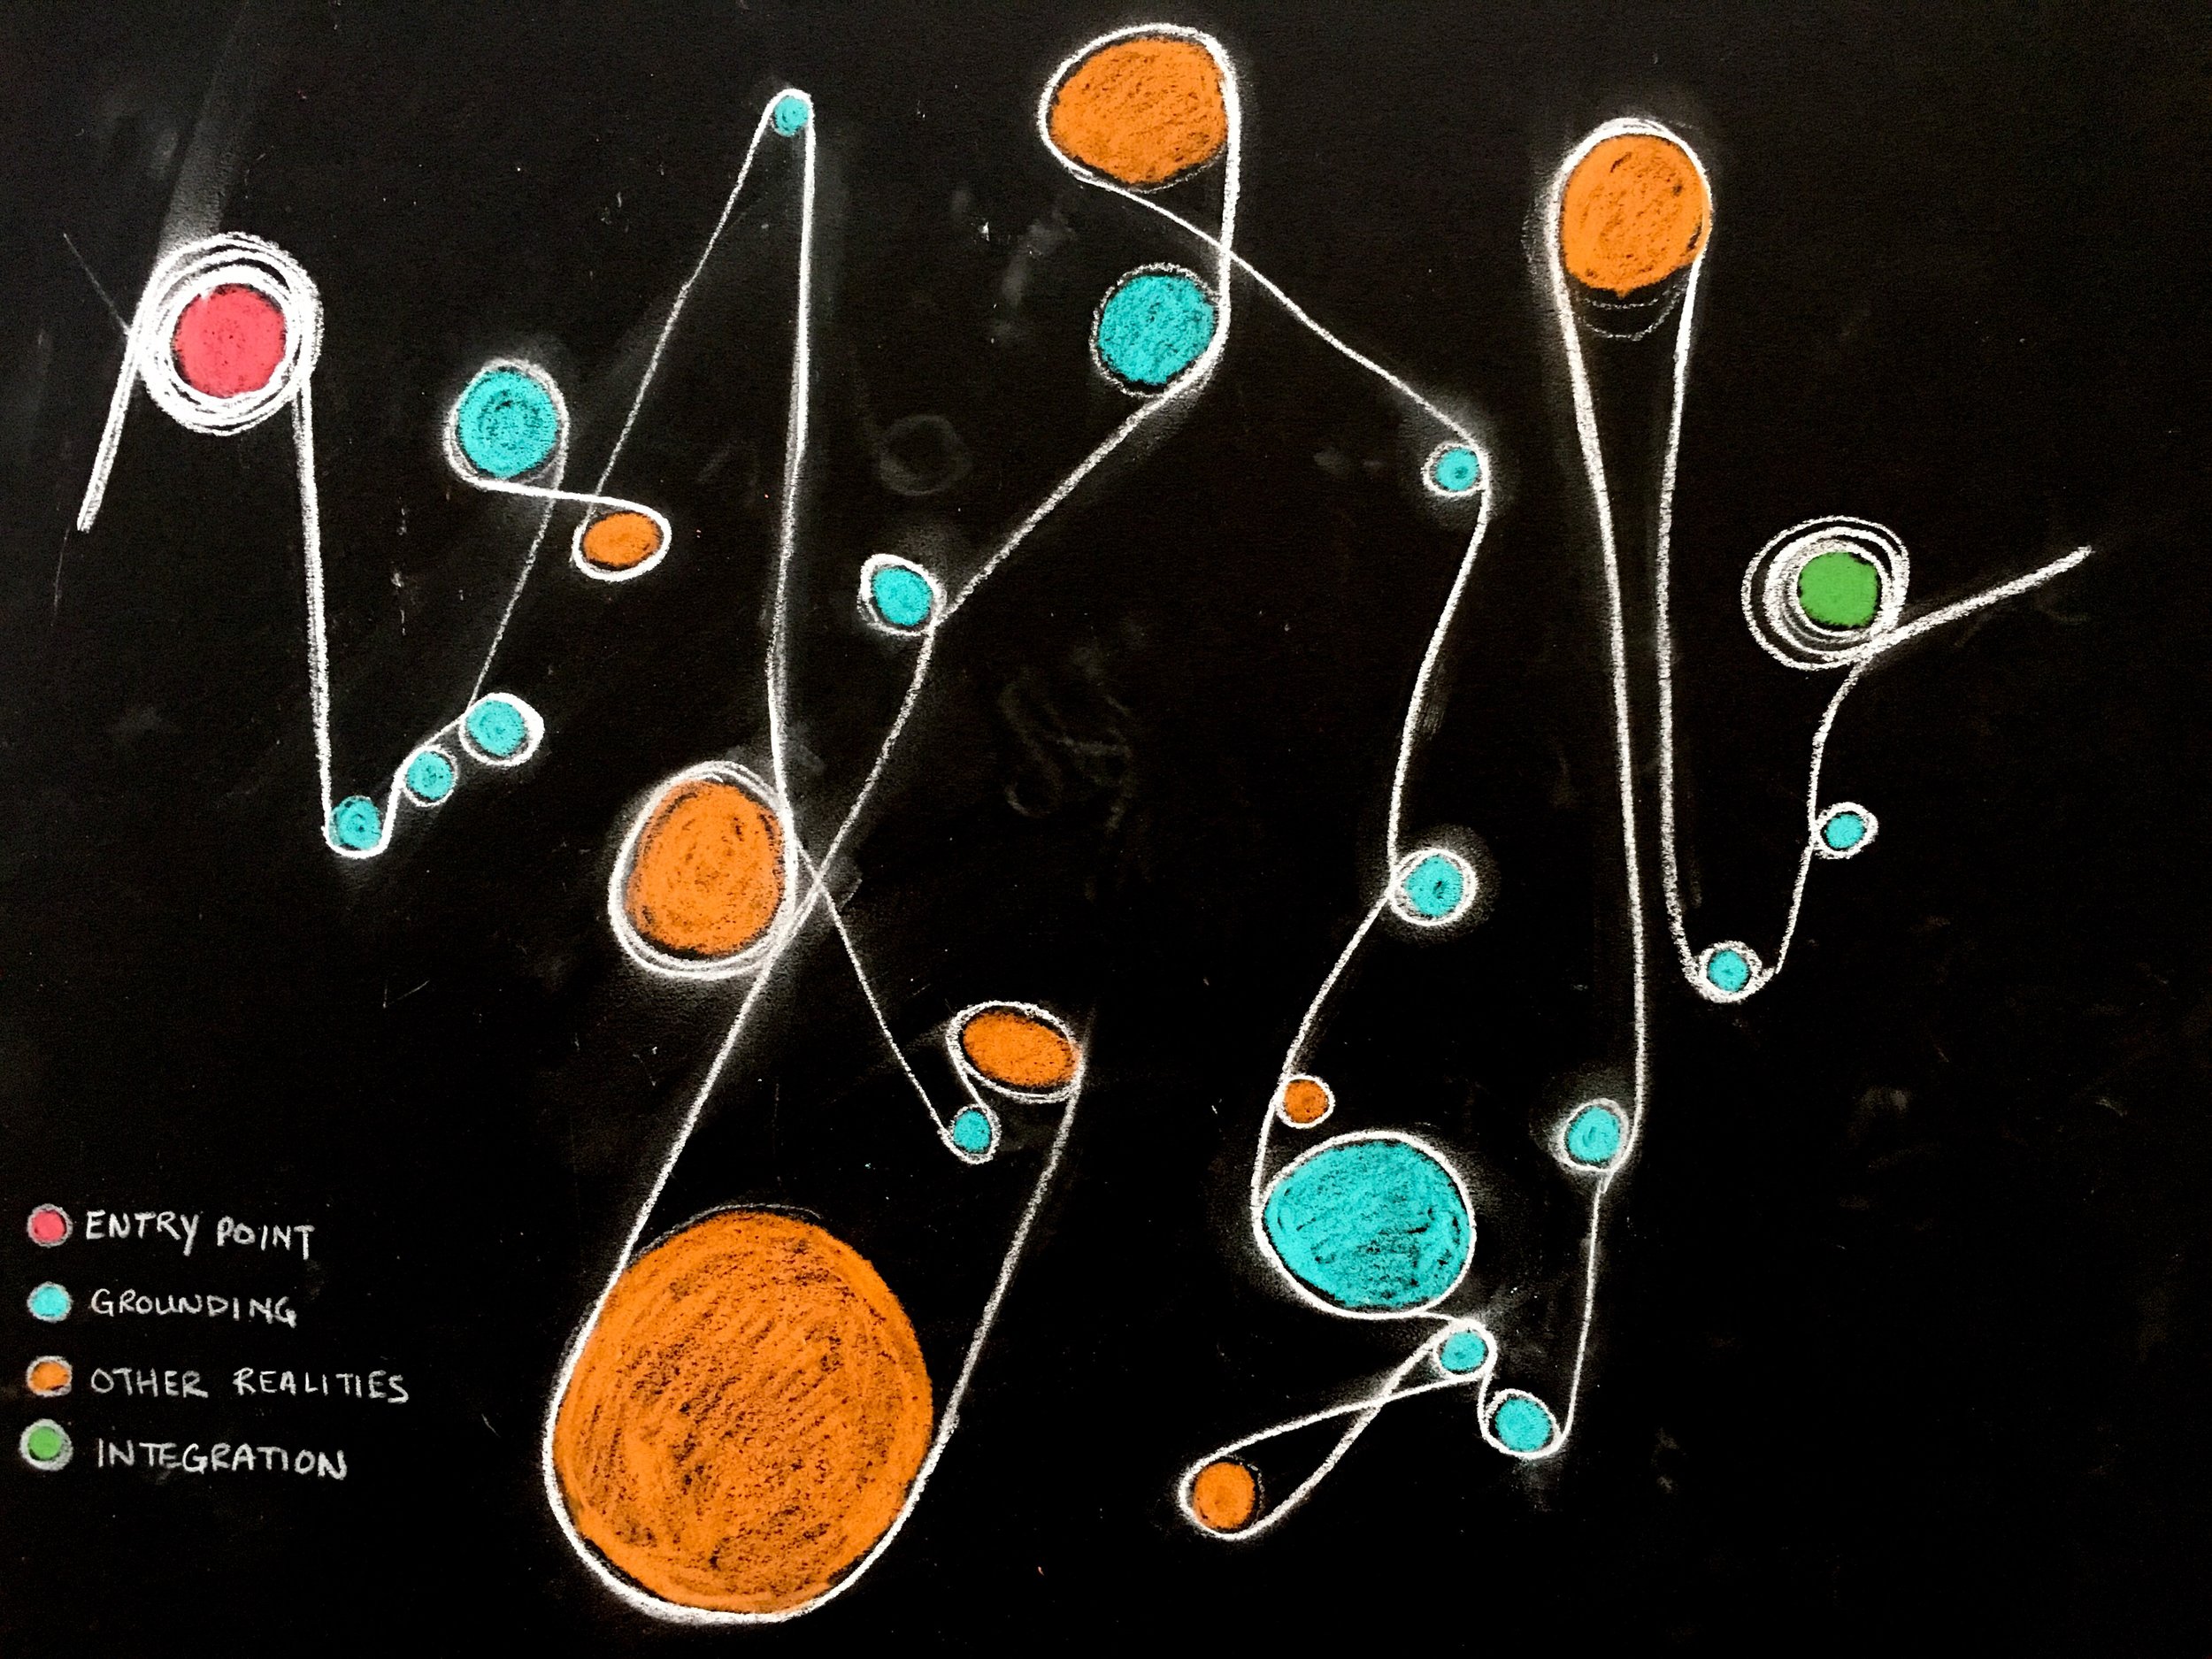 ENTRY POINT
GROUNDING
OTHER REALITIES
INTEGRATION